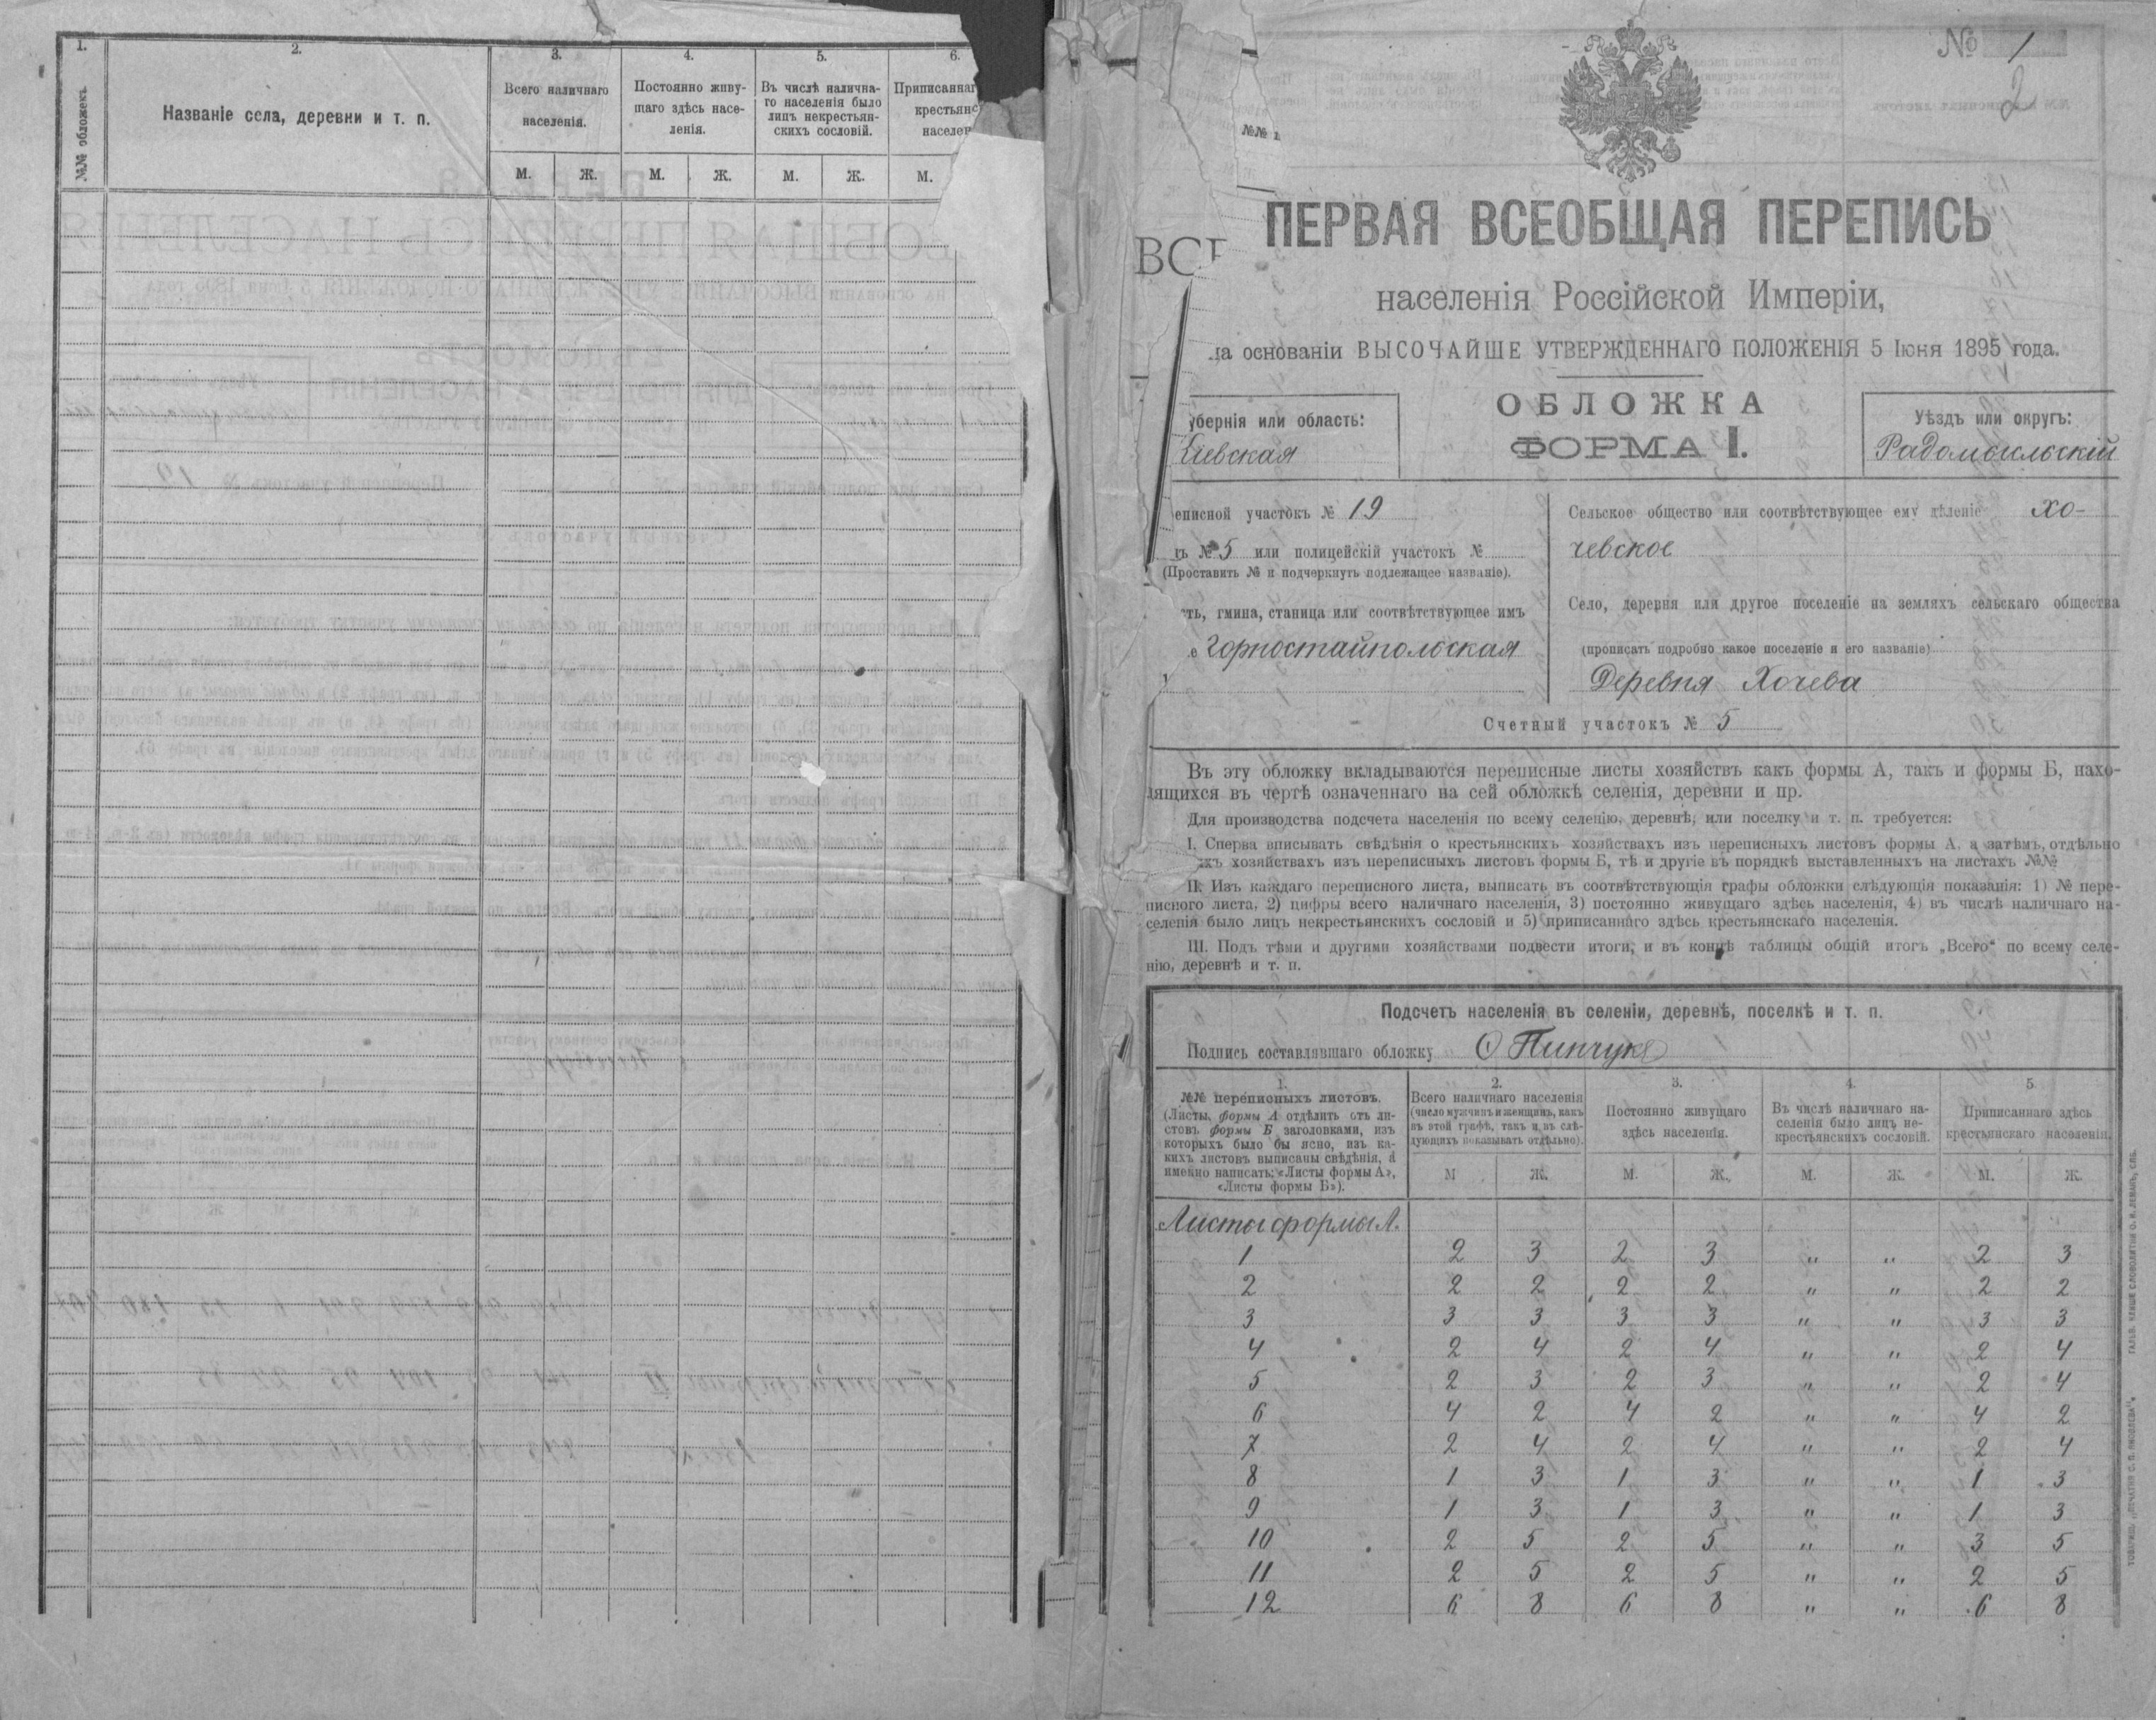 1.
№№ обложекъ.
2.
Названіе села, деревни и т. п.
3.
Всего наличнаго
населенія.
М. Ж.
4.
Постоянно живу-
щаго здѣсь насе-
ленія.
М. Ж.
5.
Въ числѣ налична-
го населенія было
лицъ некрестьян-
скихъ сословій.
М. Ж.
6.
Приписаннаг
крестьянс
населен
М.
№№
ВСЕ
№ 1
2
ПЕРВАЯ ВСЕОБЩАЯ ПЕРЕПИСЬ
населенія Россійской Имперіи,
на основаніи ВЫСОЧАЙШЕ УТВЕРЖДЕННАГО ПОЛОЖЕНІЯ 5 Іюня 1895 года.
ОБЛОЖКА
ФОРМА I.
убернія или область:
Кіевская
Уѣздъ или округъ:
Радомысльскій
еписной участокъ № 19
ъ № 5 или полицейскій участокъ №
(Проставить № и подчеркнуть подлежащее названіе).
ть, гмина, станица или соотвѣтствующее имъ
е Горностайпольская
Сельское общество или соотвѣтствующее ему дѣленіе Хо-
чевское
Село, деревня или другое поселеніе на земляхъ сельскаго общества
(прописать подробно какое поселеніе и его названіе)
Деревня Хочева
Счетный участокъ № 5
Въ эту обложку вкладываются переписные листы хозяйствъ какъ формы А, такъ и формы Б, нахо-
дящихся въ чертѣ означеннаго на сей обложкѣ селенія, деревни и пр.
Для производства подсчета населенія по всему селенію, деревнѣ, или поселку и т. п. требуется:
I. Сперва вписывать свѣдѣнія о крестьянскихъ хозяйствахъ изъ переписныхъ листовъ формы А, а затѣмъ, отдѣльно
хъ хозяйствахъ изъ переписныхъ листовъ формы Б, тѣ и другіе въ порядкѣ выставленныхъ на листахъ №№
II. Изъ каждаго переписного листа, выписать въ соотвѣтствующія графы обложки слѣдующія показанія: 1) № пере-
писного листа, 2) цифры всего наличнаго населенія, 3) постоянно живущаго здѣсь населенія, 4) въ числѣ наличнаго на-
селенія было лицъ некрестьянскихъ сословій и 5) приписаннаго здѣсь крестьянскаго населенія.
III. Подъ тѣми и другими хозяйствами подвести итоги, и въ концѣ таблицы общій итогъ „Всего“ по всему селе-
нію, деревнѣ и т. п.
Подсчетъ населенія въ селеніи, деревнѣ, поселкѣ и т. п.
Подпись составлявшаго обложку О Пинчукъ
1.
№№ переписныхъ листовъ.
(Листы, формы А отдѣлить отъ ли-
стовъ формы Б заголовками, изъ
которыхъ было бы ясно, изъ ка-
кихъ листовъ выписаны свѣдѣнія, а
именно написать: «Листы формы А»,
«Листы формы Б»).
2.
Всего наличнаго населенія
(число мужчинъ и женщинъ, какъ
въ этой графѣ, такъ и въ слѣ-
дующихъ показывать отдѣльно).
М Ж.
3.
Постоянно живущаго
здѣсь населенія.
М. Ж.
4.
Въ числѣ наличнаго на-
селенія было лицъ не-
крестьянскихъ сословій.
М. Ж.
5
Приписаннаго здѣсь
крестьянскаго населенія.
М. Ж.
Листы формы А.
1 2 3 2 3 „ „ 2 3
2 2 2 2 2 „ „ 2 2
3 3 3 3 3 „ „ 3 3
4 2 4 2 4 „ „ 2 4
5 2 3 2 3 „ „ 2 4
6 4 2 4 2 „ „ 4 2
7 2 4 2 4 „ „ 2 4
8 1 3 1 3 „ „ 1 3
9 1 3 1 3 „ „ 1 3
10 2 5 2 5 „ „ 3 5
11 2 5 2 5 „ „ 2 5
12 6 8 6 8 „ „ 6 8